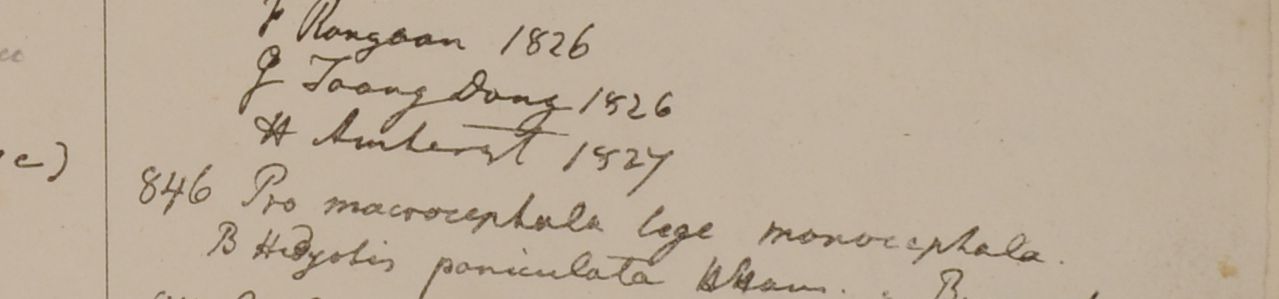 F Rangoon 1826
G Taong Dong 1826
H Amherst 1827
846 Pro macrocephala lege monocephala.
B Hedyotis paniculata HHam. . B